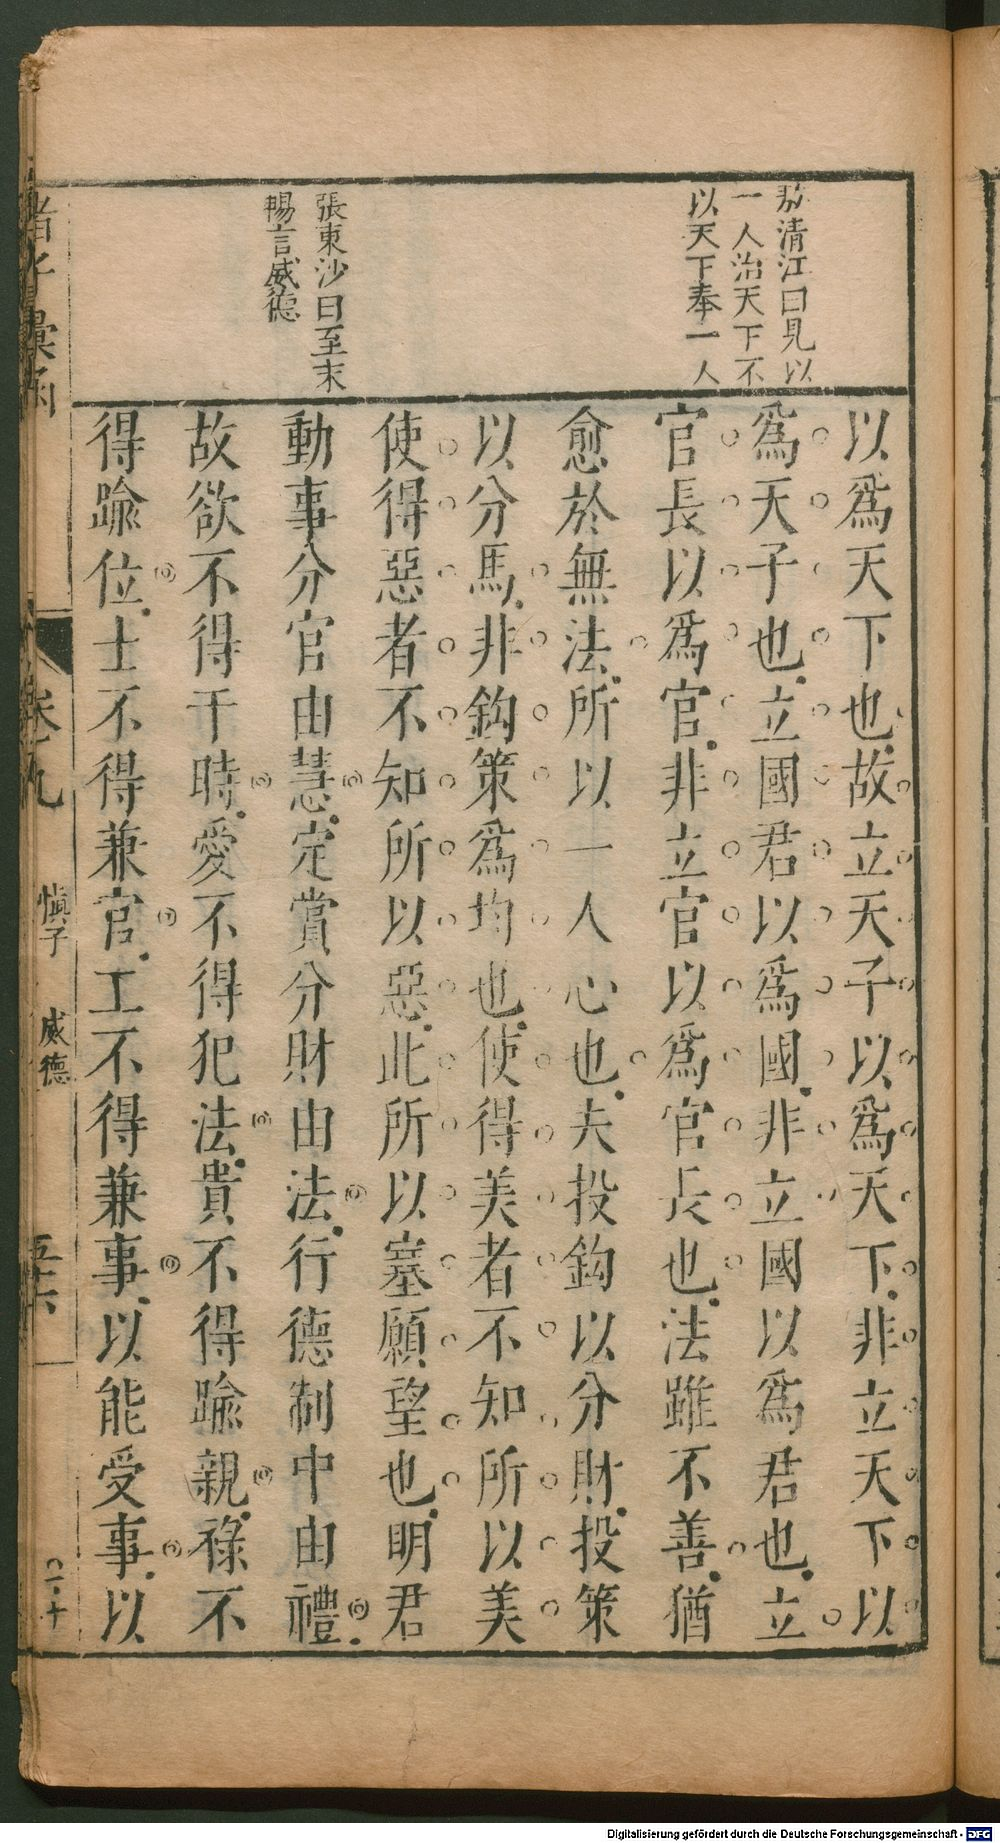 清江曰見以
一人治天下不
以天下奉一人
張東沙曰至末
暢言威德
以為天下也故立天子以為天下非立天下以
為天子也立國君以為國非立國以為君也立
官長以為官非立官以為官長也法雖不善猶
愈於無法所以一人心也夫投鈎以分財投策
以分馬非鈎策為均也使得美者不知所以美
使得惡者不知所以惡此所以塞願望也明君
動事分官由慧定賞分財由法行德制中由禮
故欲不得干時愛不得犯法貴不得踰親祿不
得踰位士不得兼官工不得兼事以能受事以
諸子彙函
卷九
慎子 威德
五十六
Digitalisierung gefördert durch die Deutsche Forschungsgemeinschaft - DFG